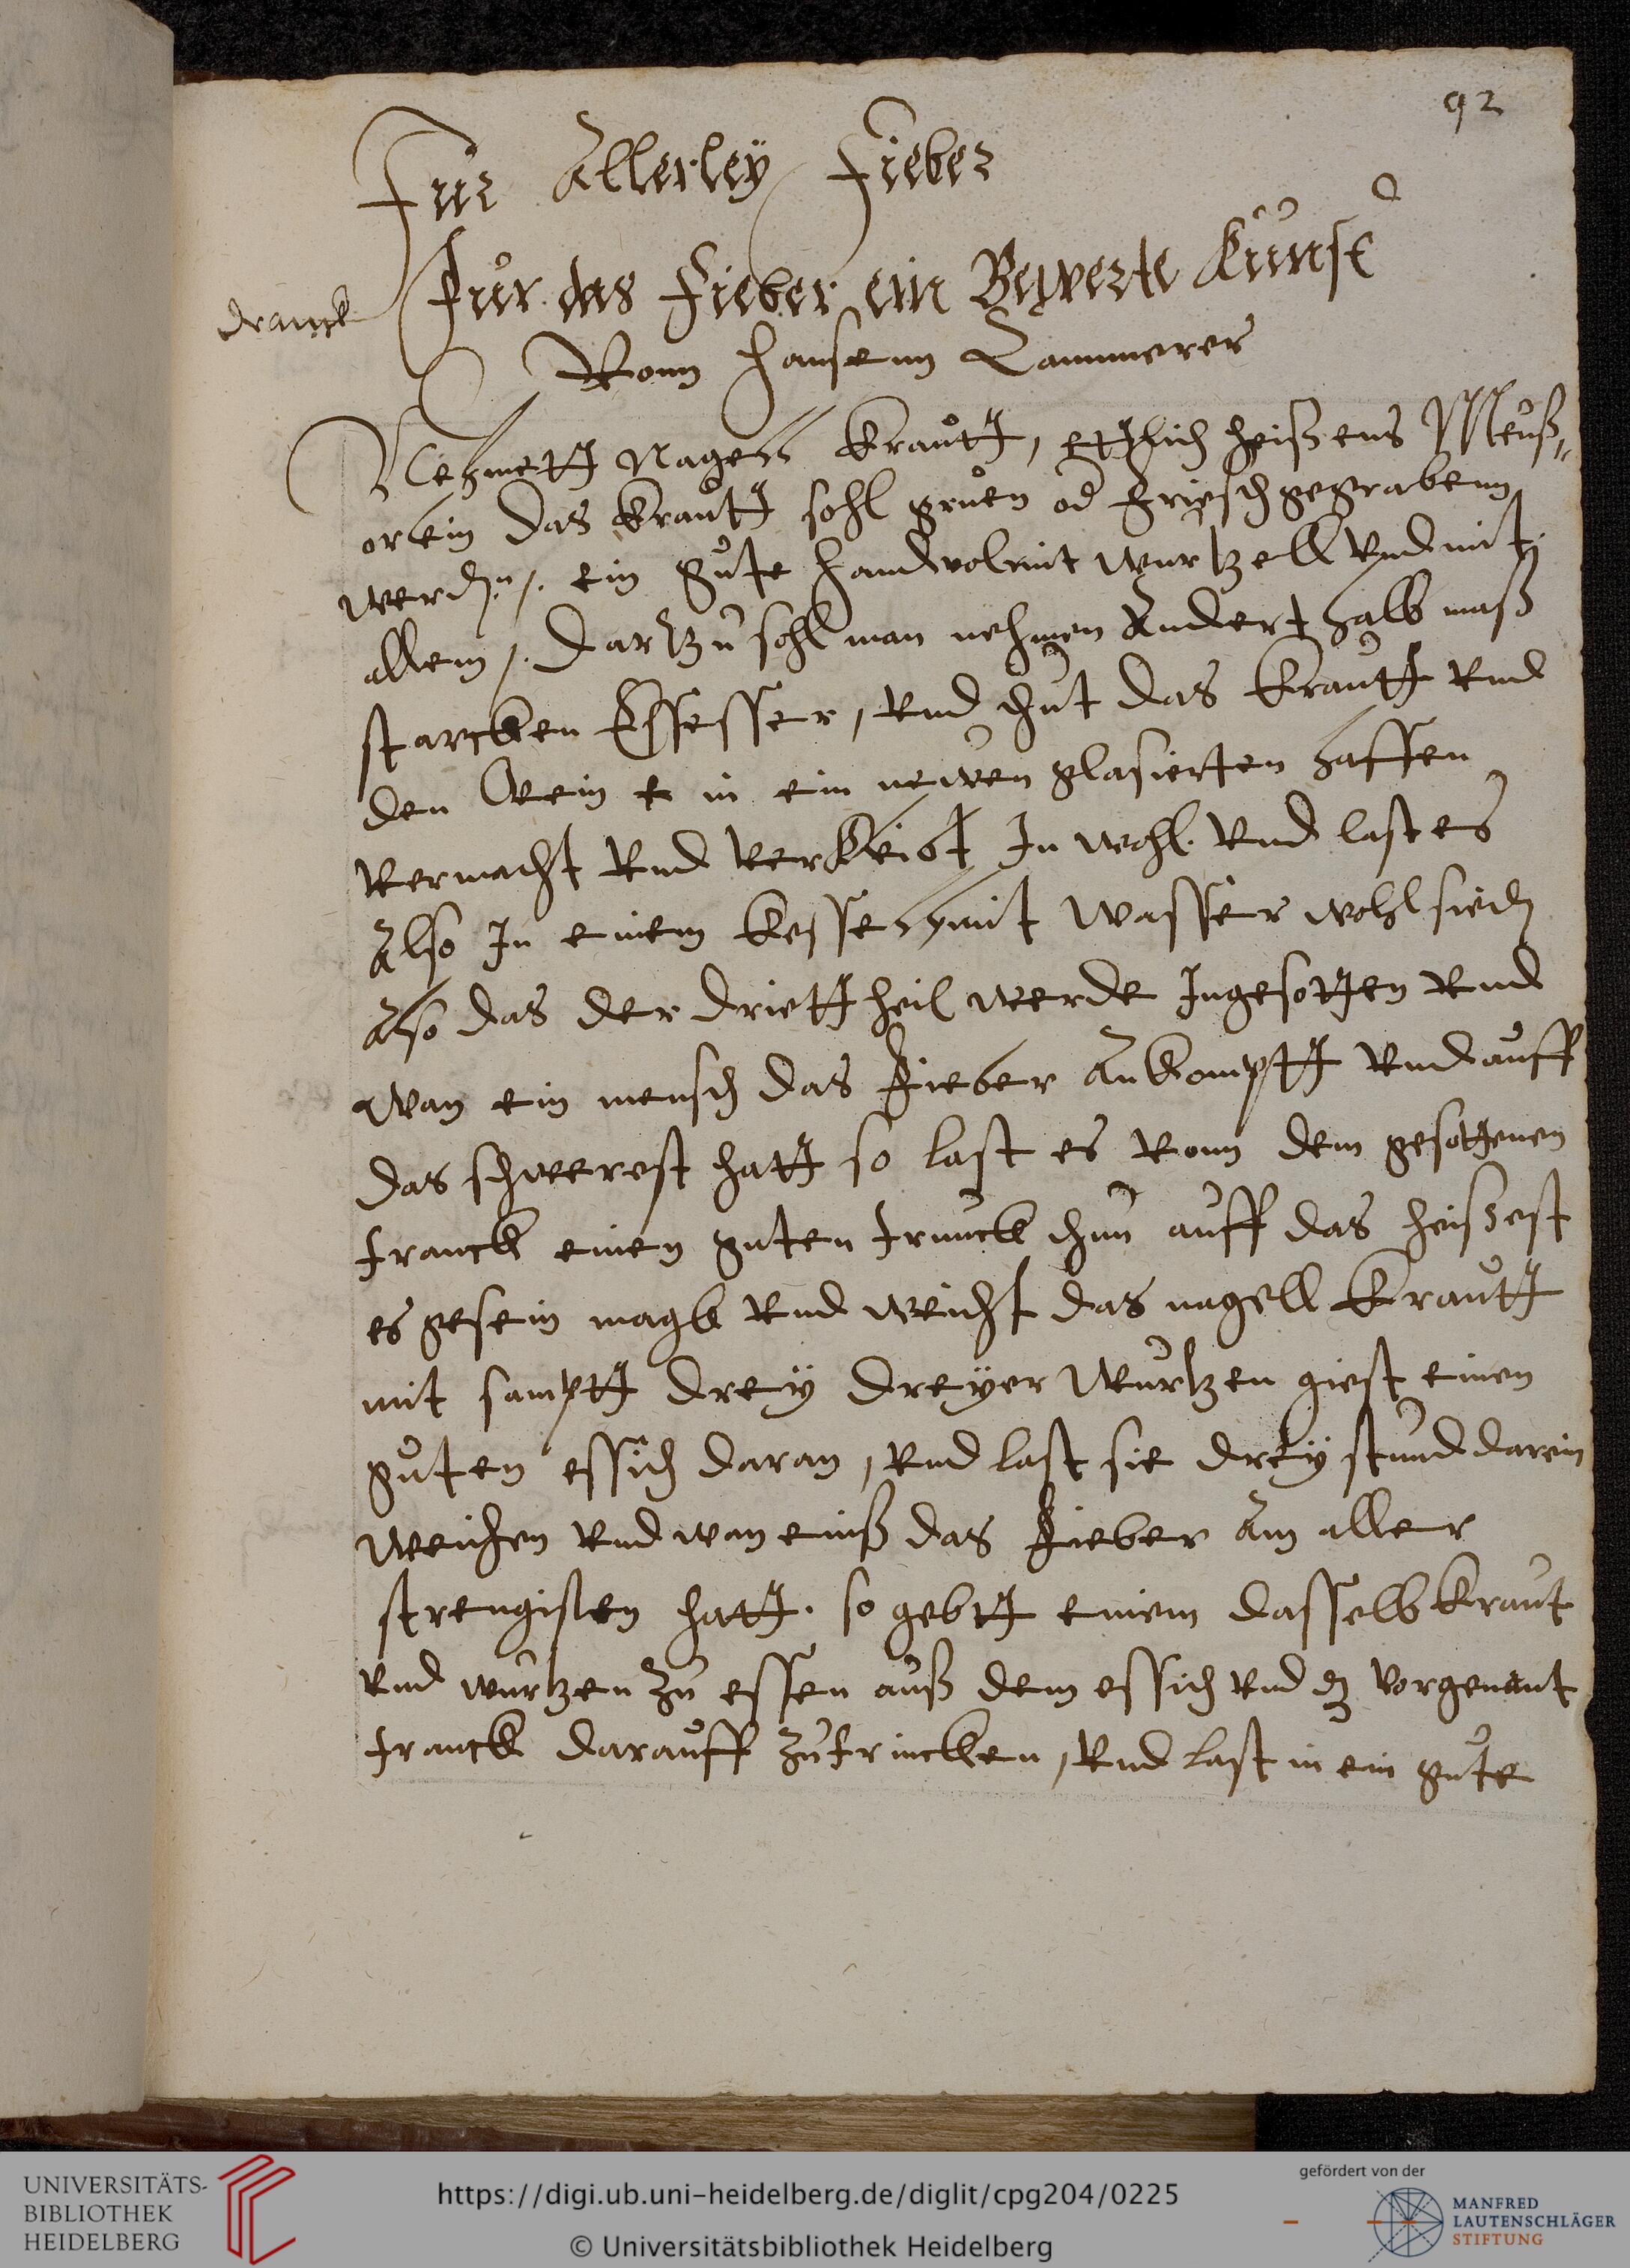 92
Für Allerleÿ Fieber
Für das Fieber ein Bewerte Kunst
dranck
Vonn Hansenn Cammerer
Nehmett Nagell Krautt, ettlich heißens Meuß„
orlein das Krautt sohl gruen od friesch gegrabenn
werdn, ein gute handvol mit wurtzell vnd mit
allem, dartzu sohl man nehmen Andert halb maß
starcken Elsesser, vnd thut das Krautt vnd
den Wein in ein newen glasierten haffen
vermacht vnd verkleibt In wohl. vnd last es
Also In einem kessell mit wasser wohl siedn
Also das der driett theil werde Ingesotten vnd
wan ein mensch das Fieber Ankomptt vnd auff
das schwerest hatt so last es vonn dem gesottenen
tranck einen guten trunck thun auff das heißest
es gesein magk vnd weicht das nagell Krautt
mit samptt dreÿ dreÿer wurtzen giest einen
guten essich daran, vnd last sie dreÿ stund darin
weichen vnd wan einß das Fieber Am aller
strengisten hatt. so gebtt einem dasselb Kraut
vnd wurtzen zu essen auß dem essich vnd dz vorgenant
tranck darauff zu trincken, vnd last in ein gute
UNIVERSITÄTS-
BIBLIOTHEK
HEIDELBERG
https://digi.ub.uni-heidelberg.de/diglit/cpg204/0225
© Universitätsbibliothek Heidelberg
gefördert von der
MANFRED
LAUTENSCHLÄGER
STIFTUNG